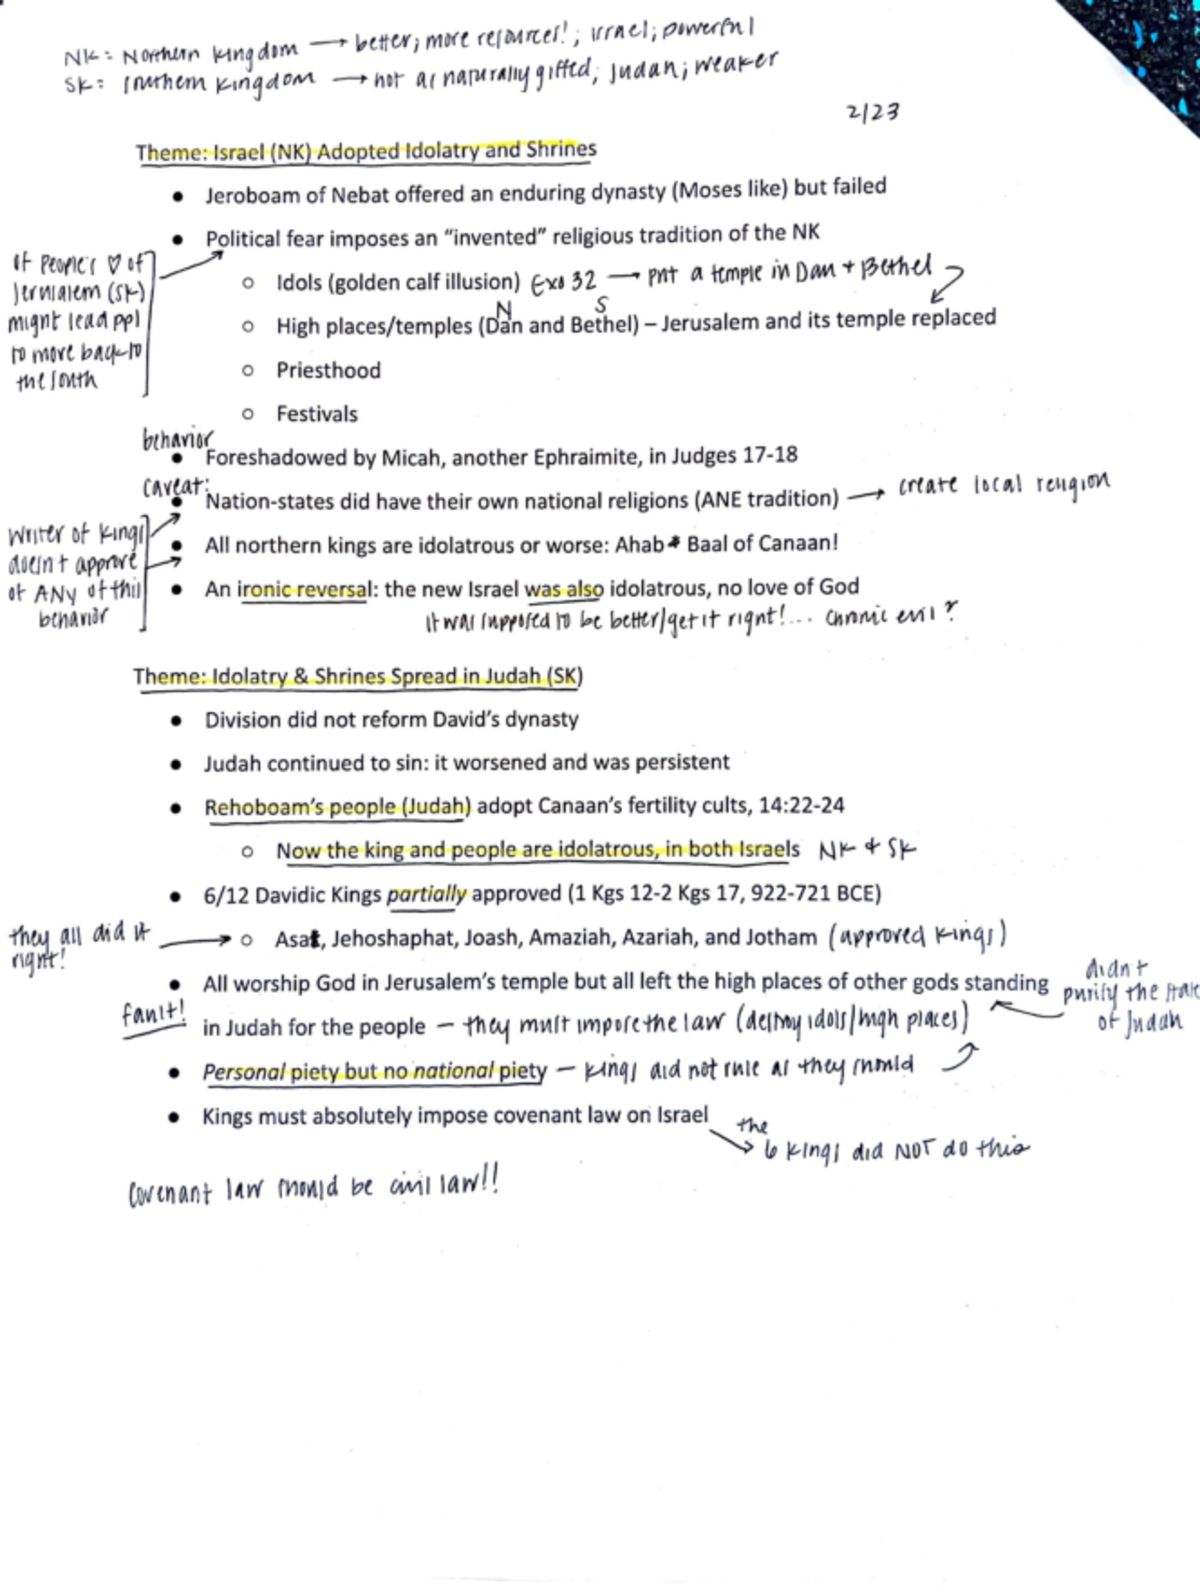 NK = Northern Kingdom → better; more resources!; israel; powerful
SK = Southern Kingdom → not as naturally gifted; Judah; weaker
2/23
Theme: Israel (NK) Adopted Idolatry and Shrines
• Jeroboam of Nebat offered an enduring dynasty (Moses like) but failed
• Political fear imposes an “invented” religious tradition of the NK
of People's ♡ of
Jerusalem (SK)
might lead ppl
to move back to
the South
○ Idols (golden calf illusion) Exo 32 → put a temple in Dan + Bethel
N S
○ High places/temples (Dan and Bethel) – Jerusalem and its temple replaced
○ Priesthood
○ Festivals
behavior
• Foreshadowed by Micah, another Ephraimite, in Judges 17-18
caveat:
• Nation-states did have their own national religions (ANE tradition) → create local religion
Writer of Kings
doesn't approve
of ANY of this
behavior
• All northern kings are idolatrous or worse: Ahab Baal of Canaan!
• An ironic reversal: the new Israel was also idolatrous, no love of God
it was supposed to be better/get it right!... chronic evil?
Theme: Idolatry & Shrines Spread in Judah (SK)
• Division did not reform David’s dynasty
• Judah continued to sin: it worsened and was persistent
• Rehoboam’s people (Judah) adopt Canaan’s fertility cults, 14:22-24
○ Now the king and people are idolatrous, in both Israels NK + SK
• 6/12 Davidic Kings partially approved (1 Kgs 12-2 Kgs 17, 922-721 BCE)
they all did it
right!
→ ○ Asa, Jehoshaphat, Joash, Amaziah, Azariah, and Jotham (approved kings)
• All worship God in Jerusalem’s temple but all left the high places of other gods standing
didn't
purify the state
of Judah
fault!
in Judah for the people – they must impose the law (destroy idols/high places)
• Personal piety but no national piety – kings did not rule as they should
• Kings must absolutely impose covenant law on Israel
→ the 6 kings did NOT do this
Covenant law should be civil law!!